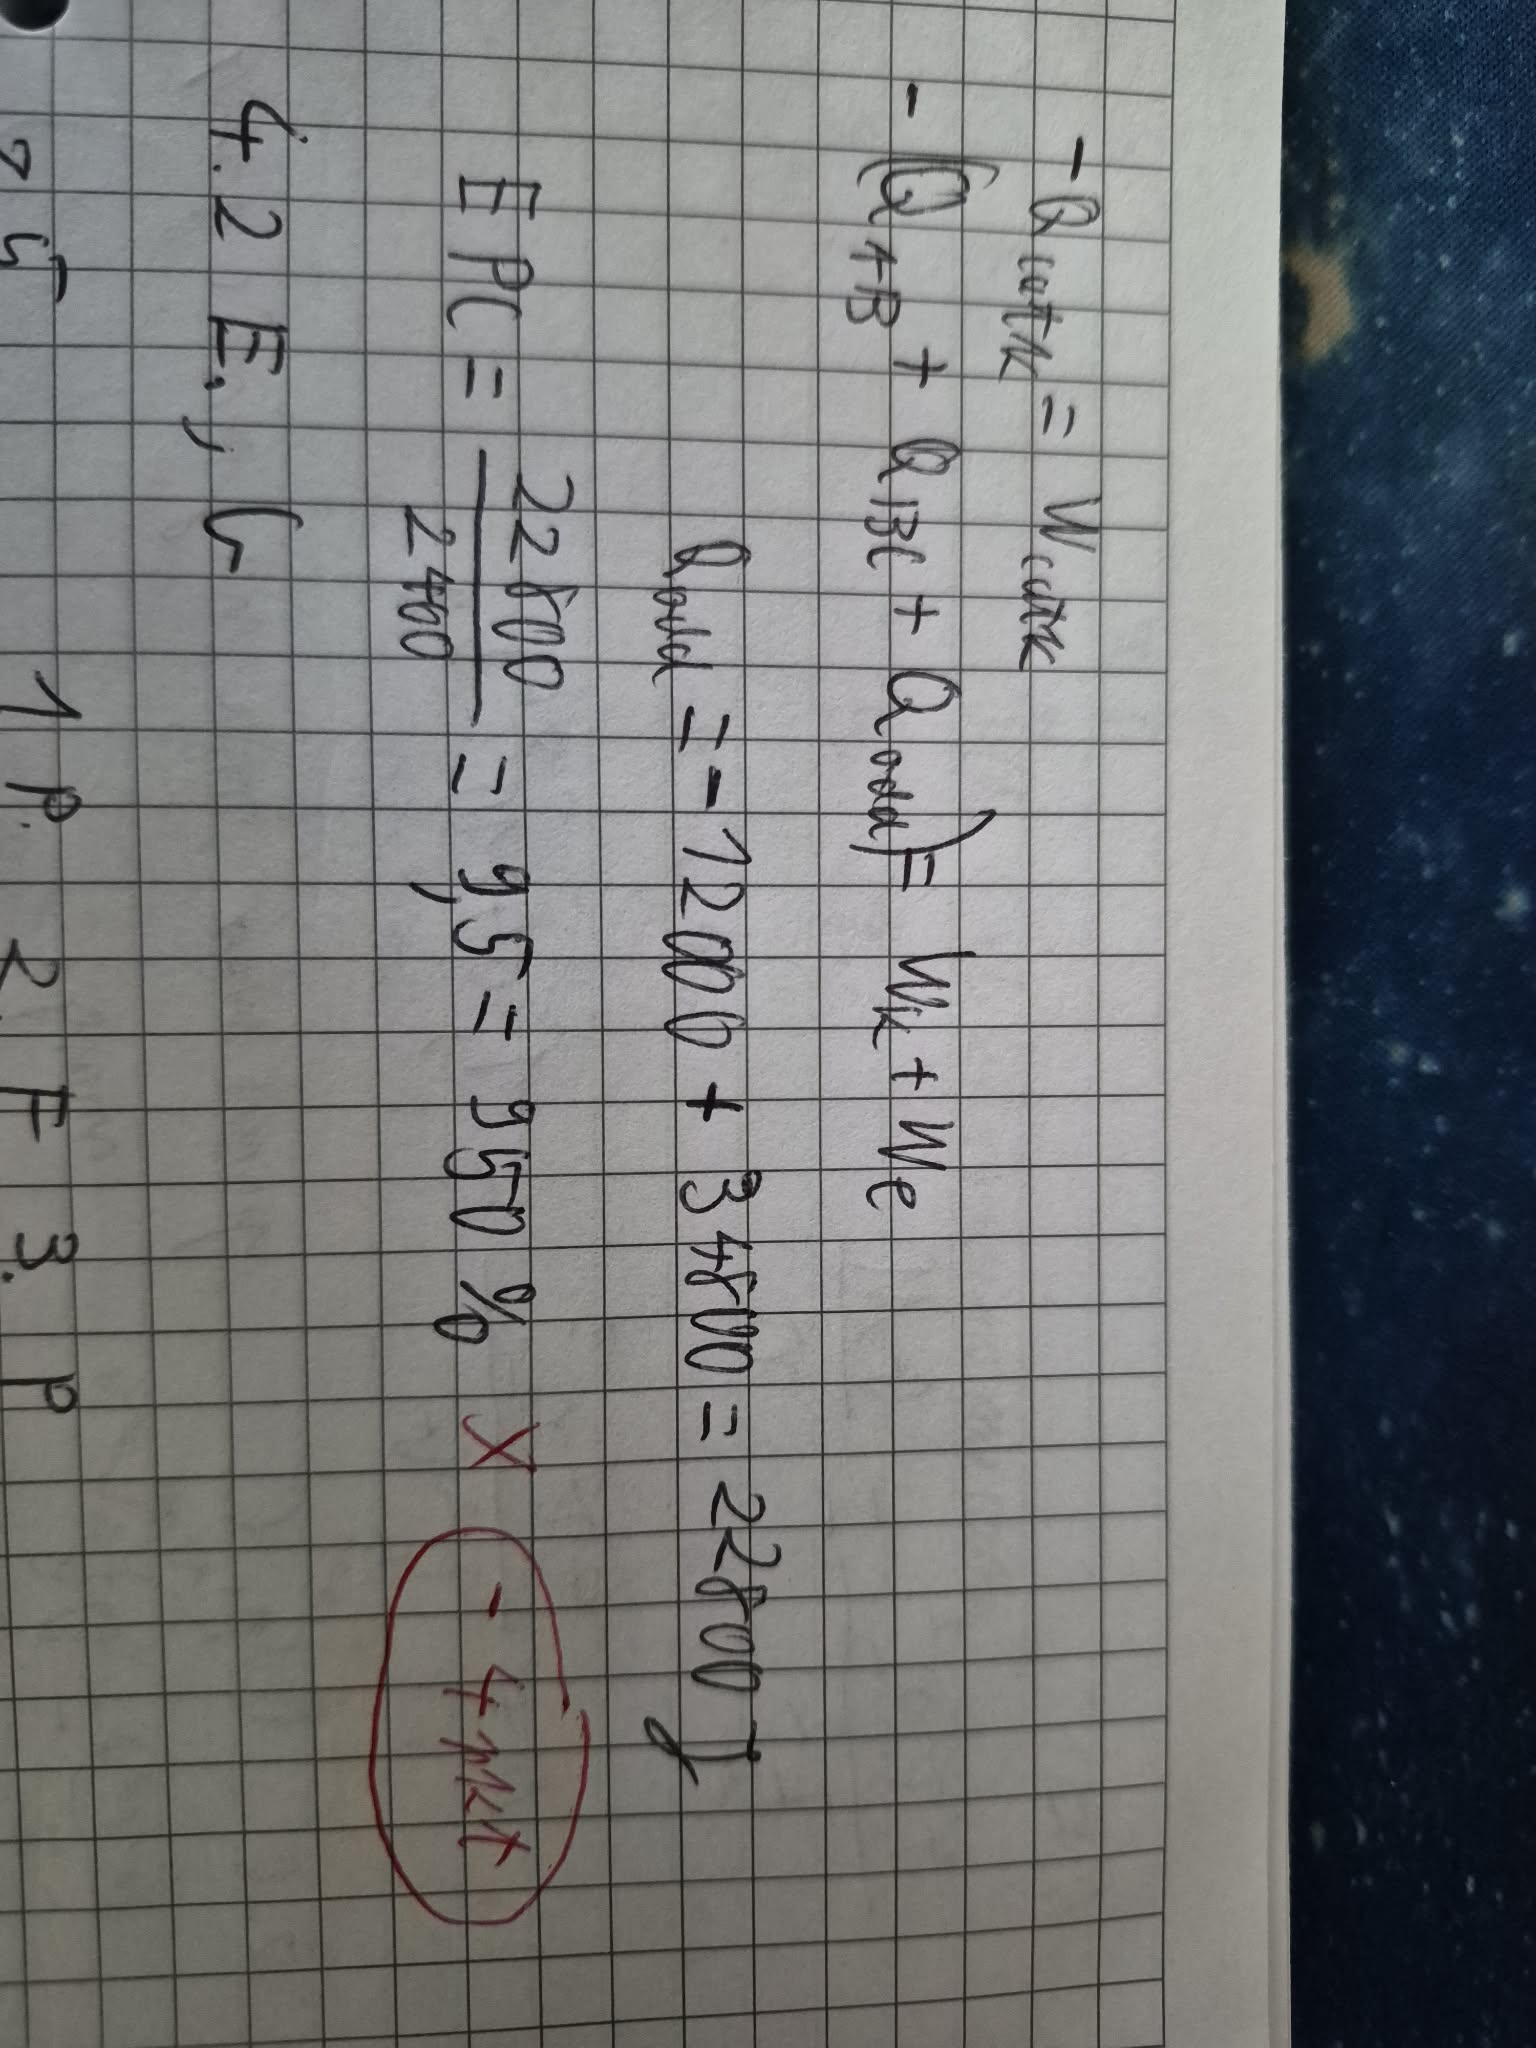 - Q całk = W całk
- (Q AB + Q BC + Q odd) = Wk + We
Q odd = - 12000 + 34800 = 22800 J
EPC = 22800/2400 = 9,5 = 950 % X - 4 pkt
4.2 E,
1 P. 2. F 3. P